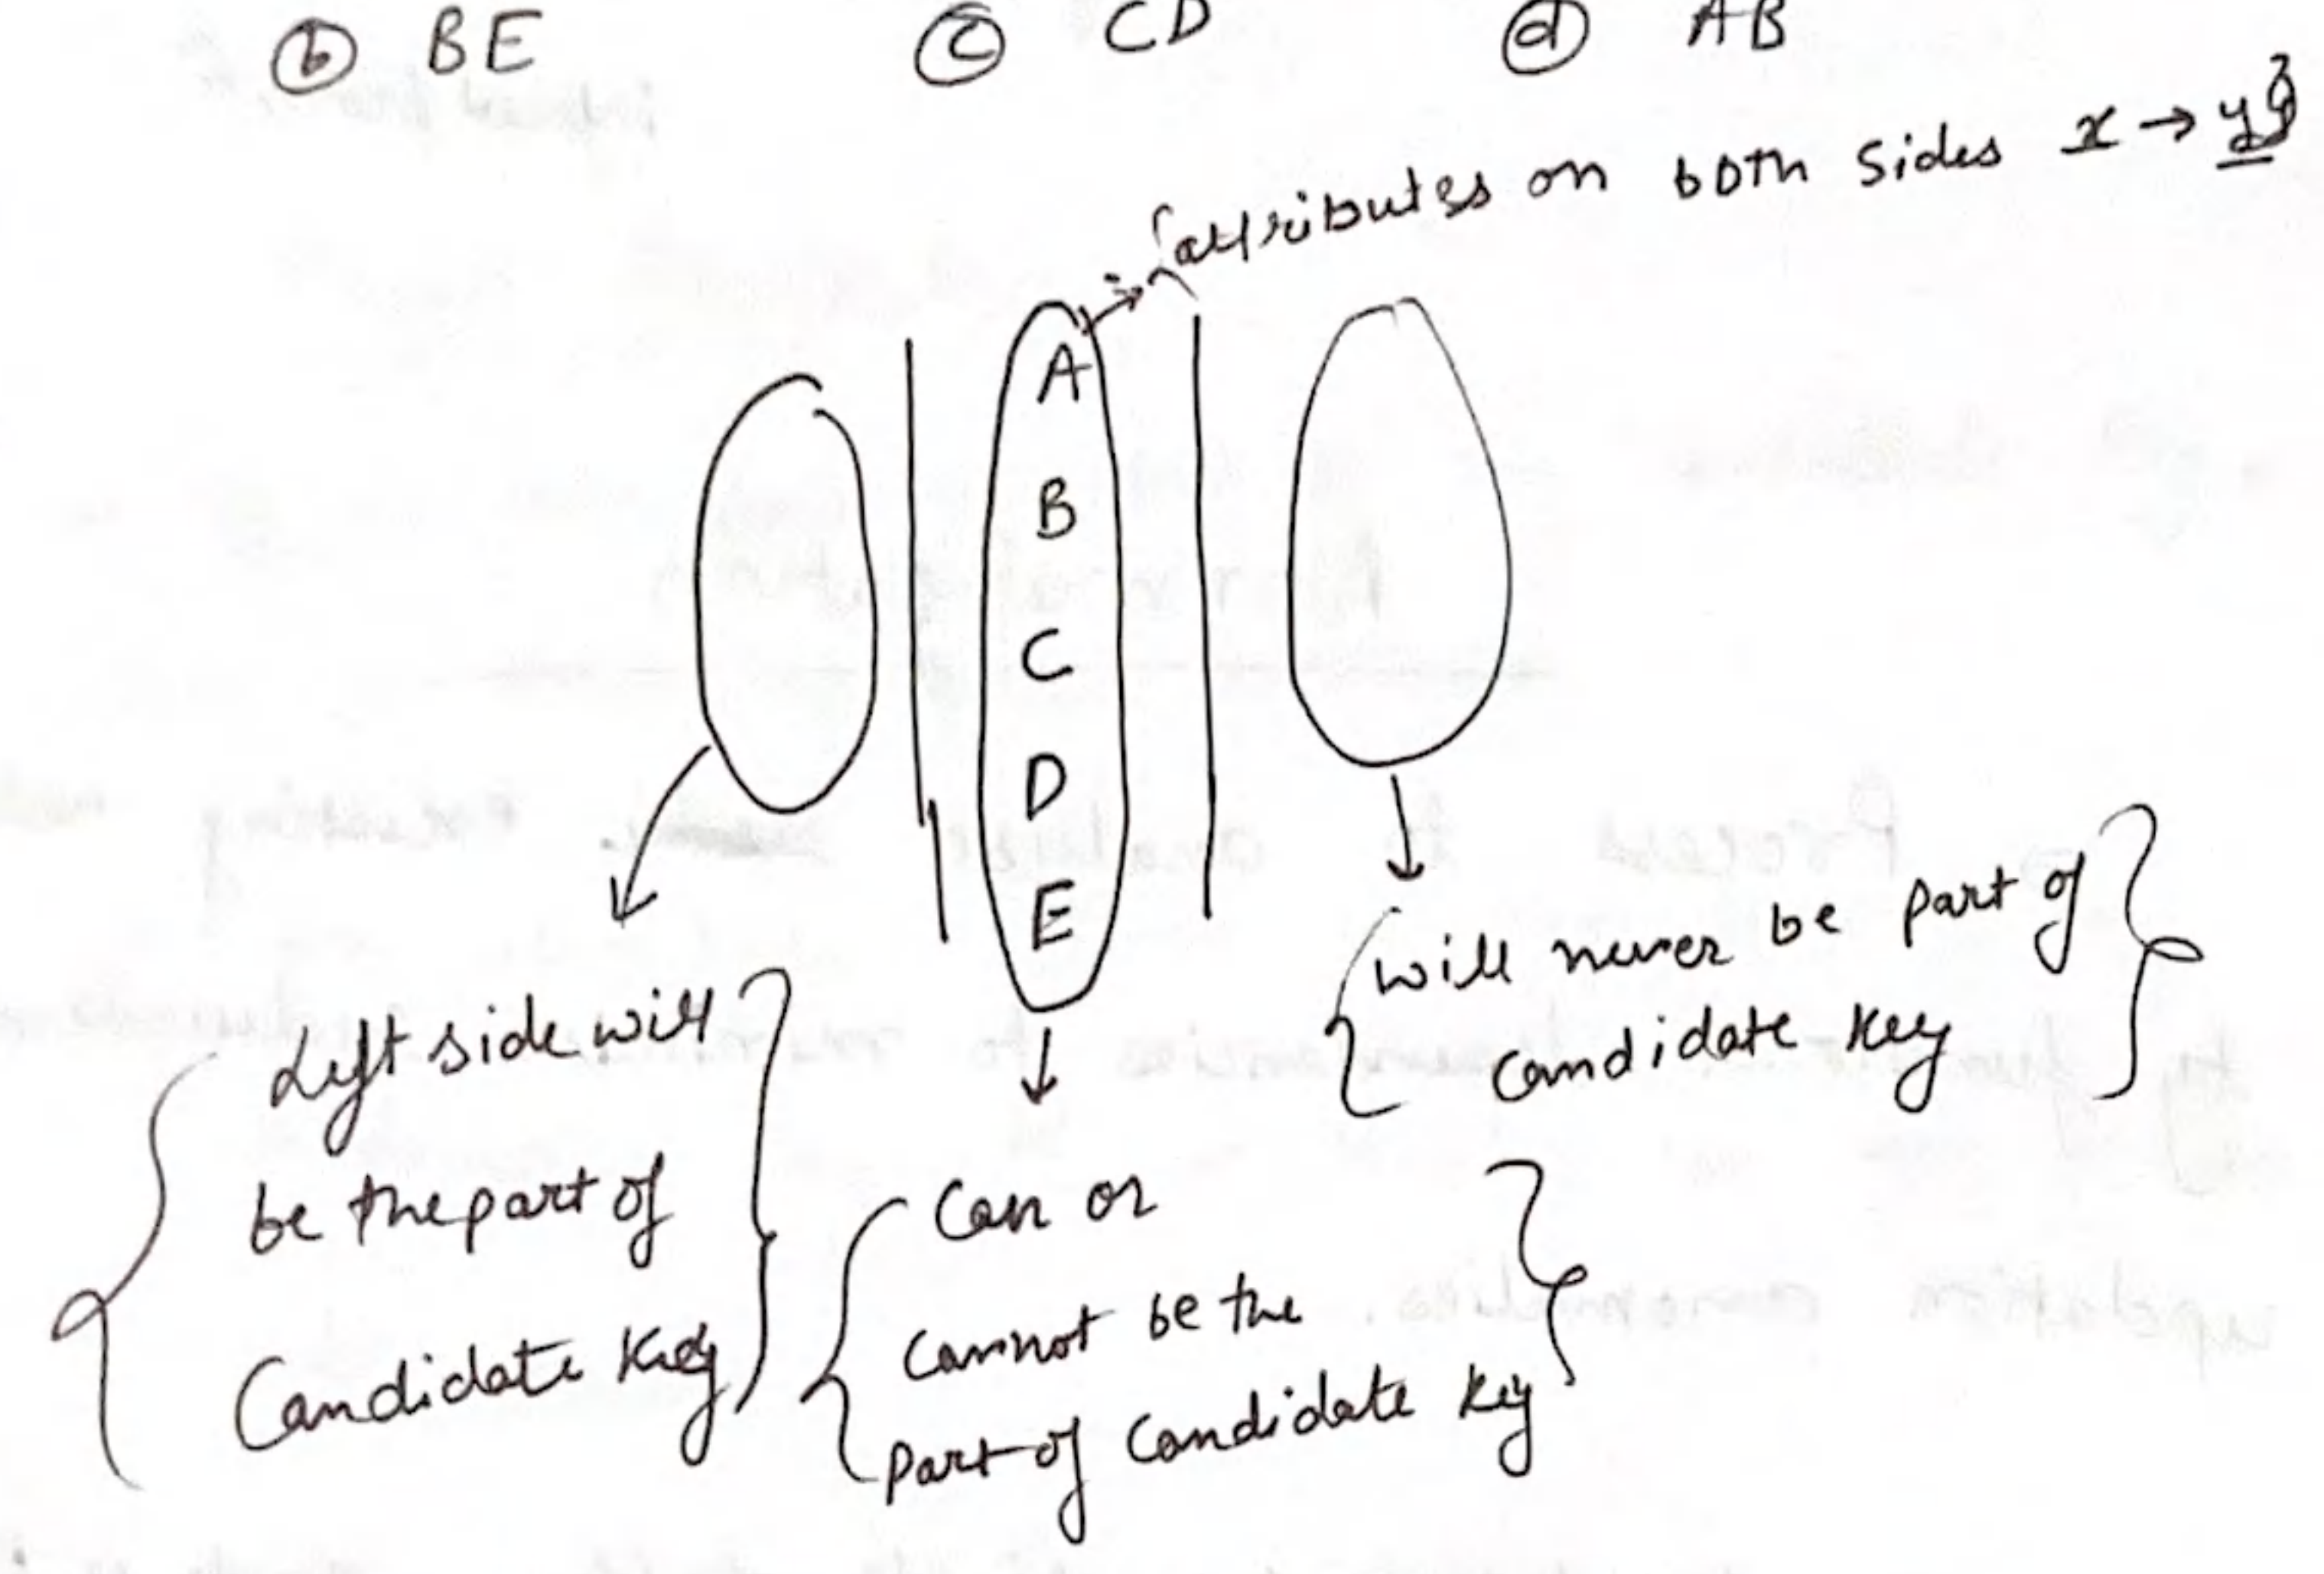 (b) BE (c) CD (d) AB
{attributes on both sides x → y}
A
B
C
D
E
Left side will
be the part of
Candidate Key
Can or
cannot be the
part of candidate key
will never be part of
candidate key